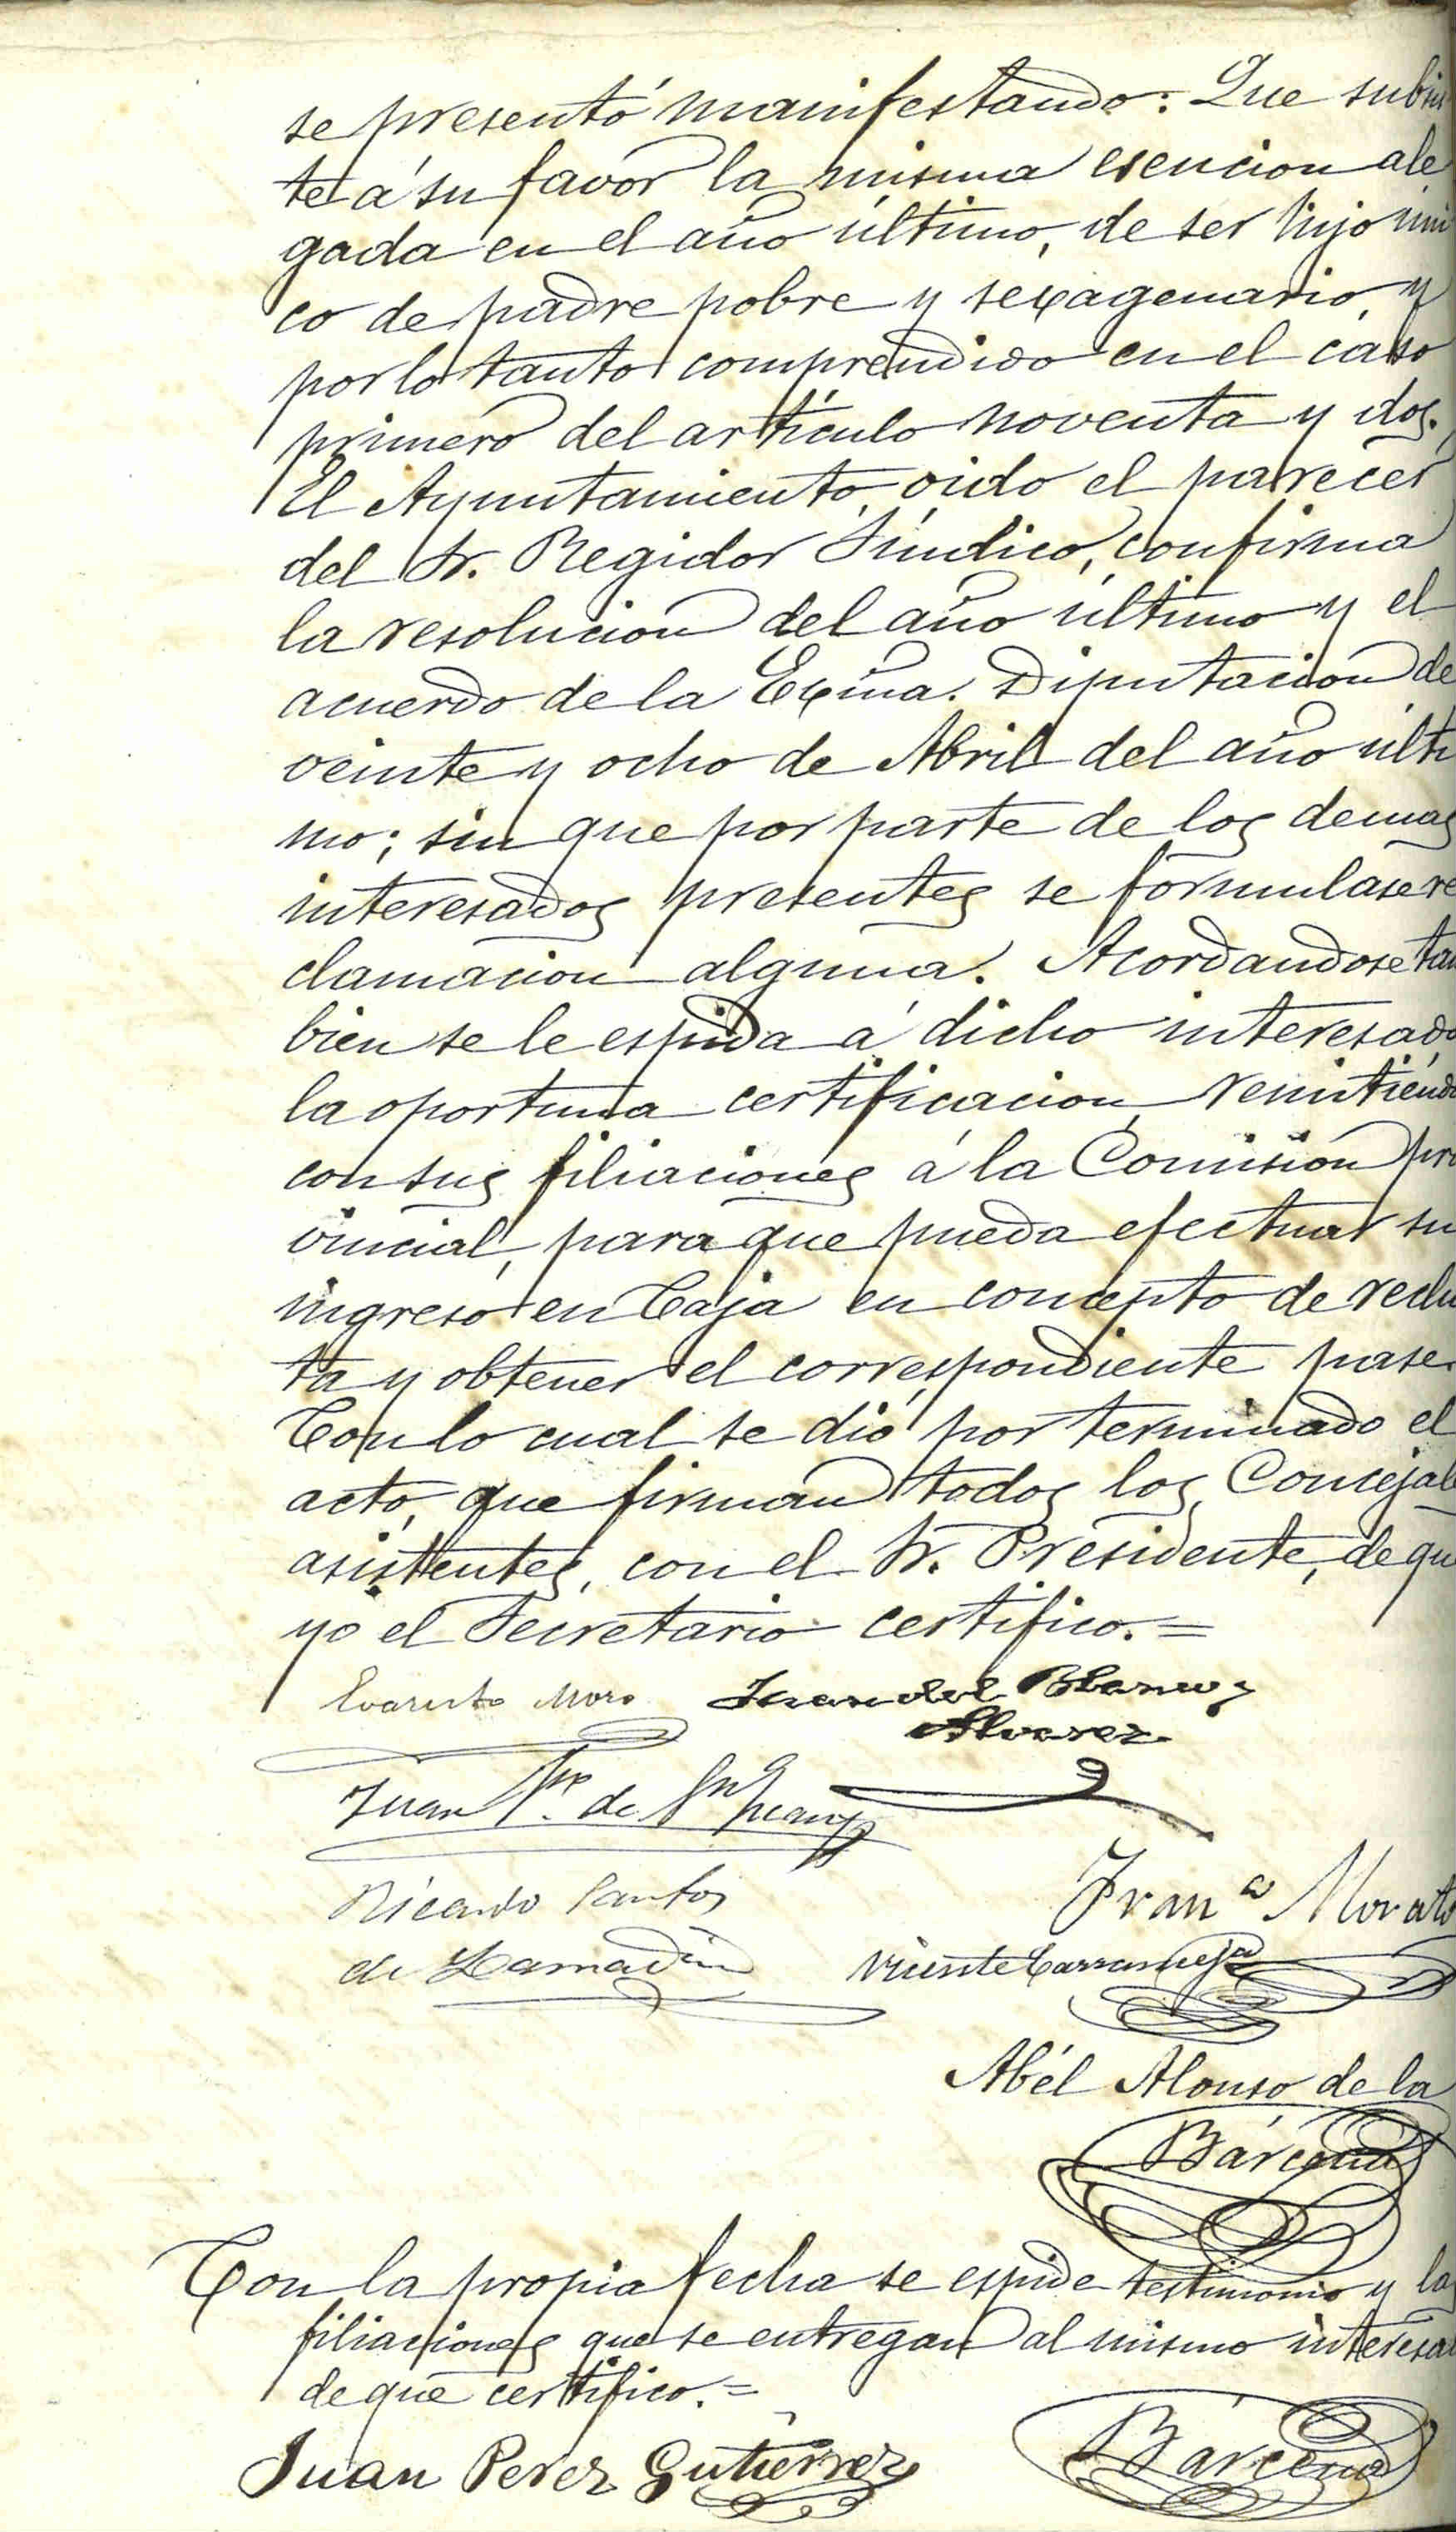 se presentó manifestando: Que subsis
te á su favor la misma esencion ale
gada en el año último, de ser hijo úni
co de padre pobre y sexagenario, y
por lo tanto comprendido en el caso
primero del artículo noventa y dos.
El Ayuntamiento, oido el parecer
del Sr. Regidor Síndico, confirma
la resolucion del año último y el
acuerdo de la Exma. Diputacion de
veinte y ocho de Abril del año últi
mo; sin que por parte de los demas
interesados presentes se formulase re
clamacion alguna. Acordandose tam
bien se le espida á dicho interesado
la oportuna certificacion, remitiendo
con sus filiaciones á la Comision pro
vincial, para que pueda efectuar su
ingreso en Caja en concepto de reclu
ta y obtener el correspondiente pase.
Con lo cual se dió por terminado el
acto, que firman todos los Concejales
asistentes, con el Sr. Presidente, de que
yo el Secretario certifico.=
Evaristo Moro Juan del Blanco y
Alvarez
Juan de
Ricardo Santos
de Lamadrid
Franco Morato
Vicente
Abél Alonso de la
Bárcena
Con la propia fecha se espide testimonio y las
filiaciones que se entregan al mismo interesado
de que certifico.=
Juan Perez Gutierrez Bárcena